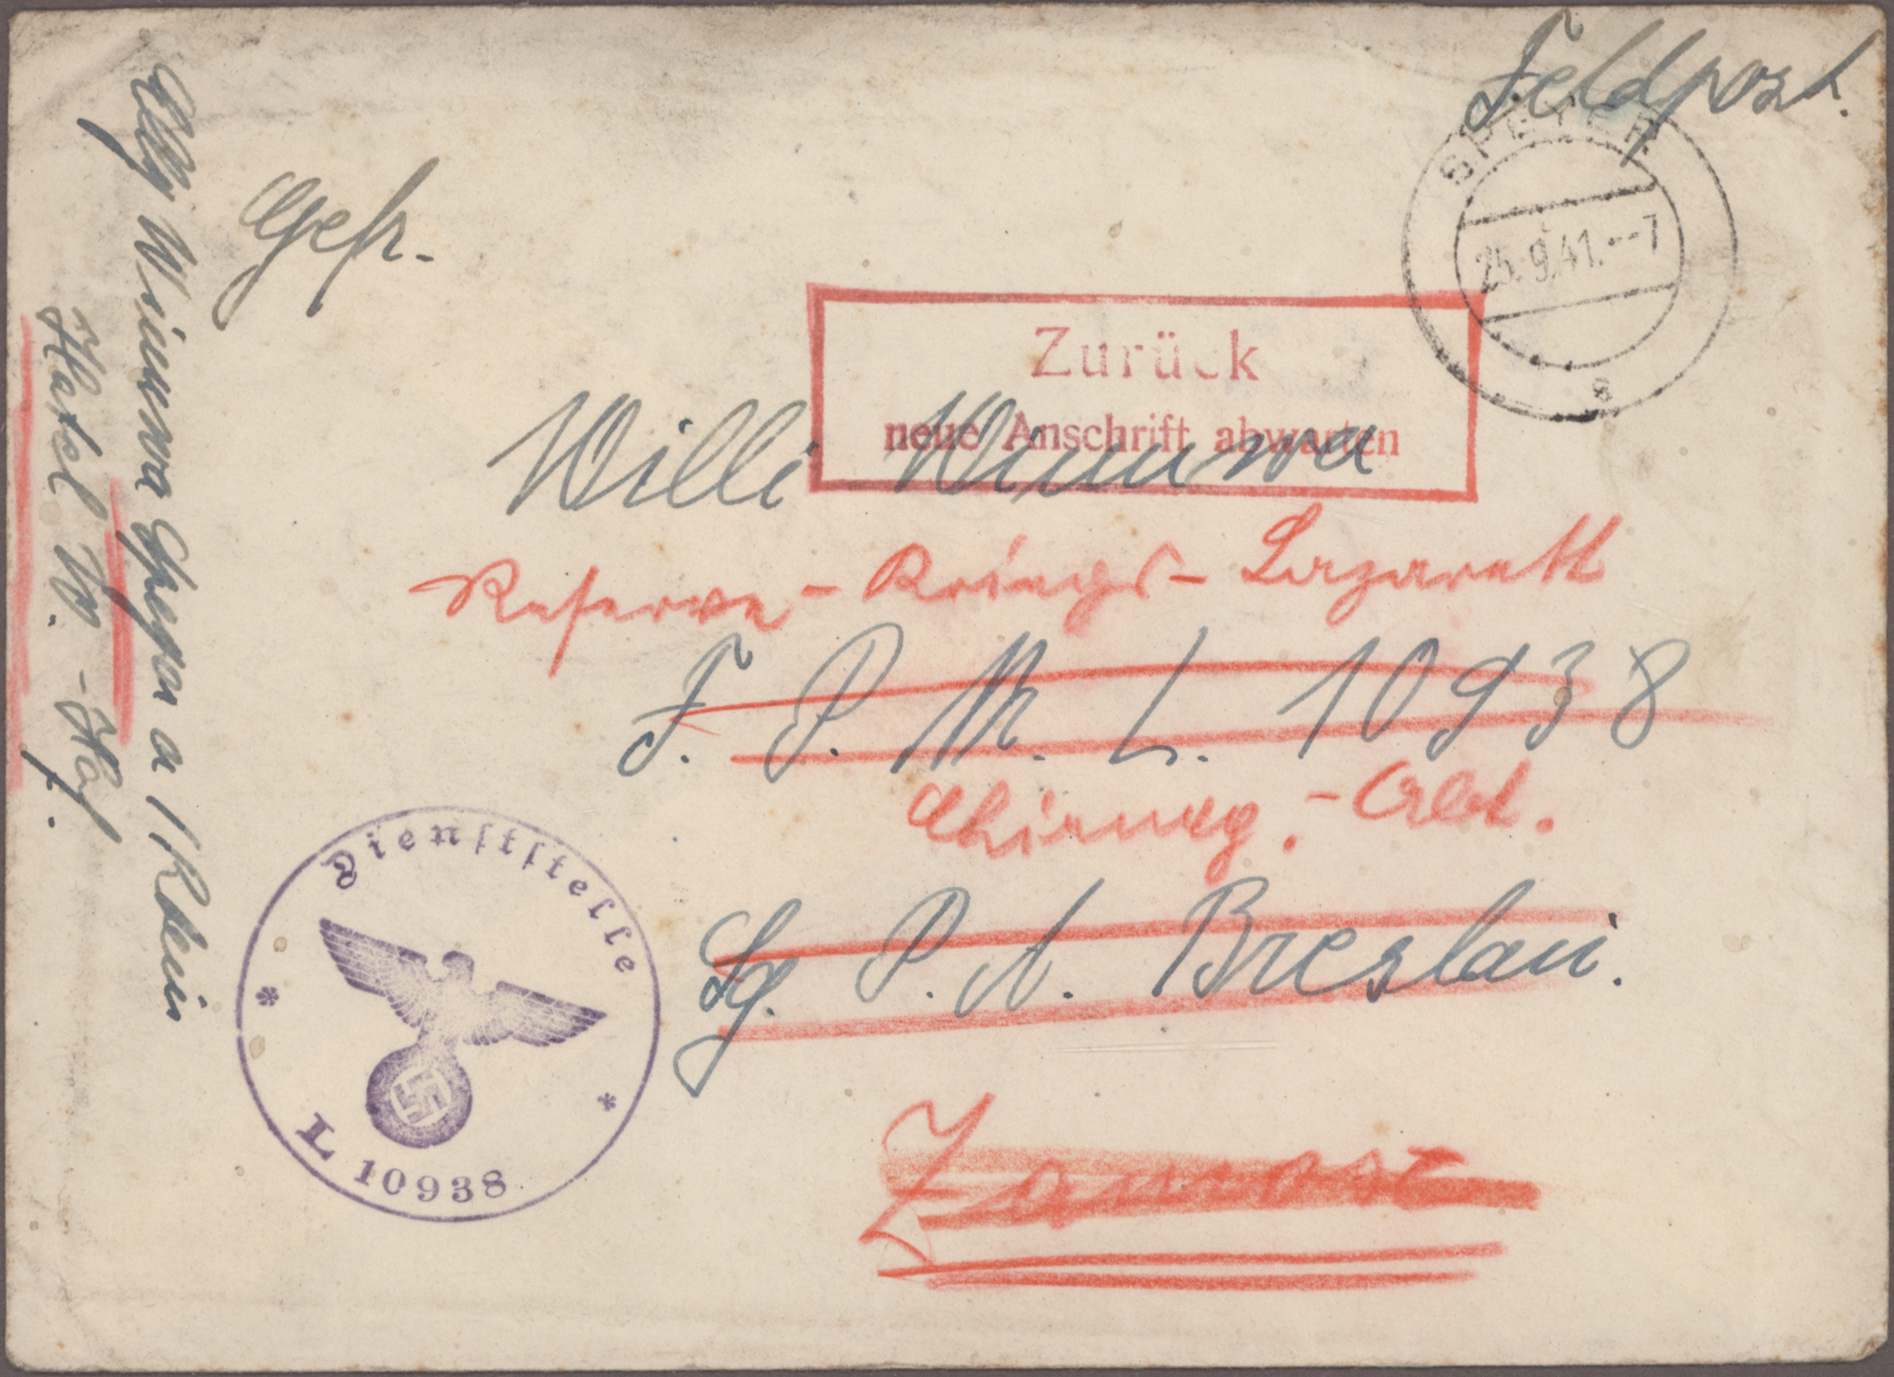 Feldpost.
SPEYER
25.9.41.--7
Gefr.
Zurück
neue Anschrift abwarten
Willi
Reserve-Kriegs-Lazarett
F. P. Nr. L. 10938
Chirurg.-Abt.
Lg. P. A. Breslau.
Zamosc
Dienststelle
L 10938
Elly Speyer a / Rhein
Hotel W. -Hof.